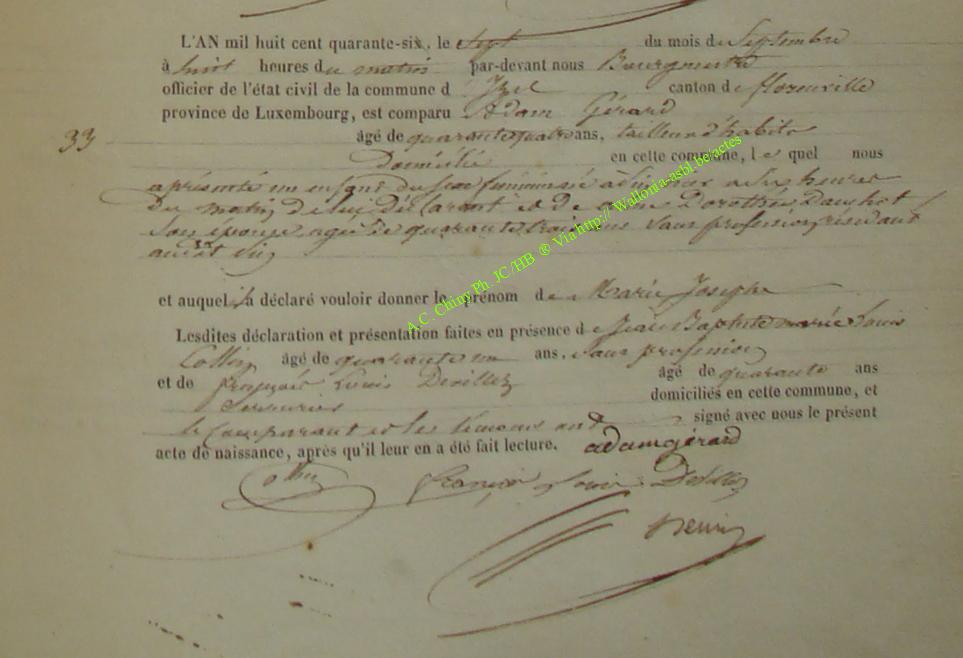 L'AN mil huit cent quarante-six, le Sept du mois de Septembre
à huit heures du matin par-devant nous Bourgmestre
officier de l'état civil de la commune d Izel canton de florenville
province de Luxembourg, est comparu Adam Gérard
33 âgé de quarante quatre ans, tailleur d'habits
Domicilié en cette commune, le quel nous
a présenté un enfant du sexe féminin né à heures
Du matin de lui Déclarant et de Dorothée
Son épouse agée de quarante trois ans Sans profession, residant
et auquel il a déclaré vouloir donner le prénom de Marie Josephe
Lesdites déclaration et présentation faites en présence de Jean Baptiste marie Louis
Collin âgé de quarante un ans, Sans profession
et de françois Louis Devillez âgé de quarante ans
Serrurier domiciliés en cette commune, et
le Comparant et les témoins ont signé avec nous le présent
acte de naissance, après qu'il leur en a été fait lecture. adam gérard
Collin François Louis Devillez
A.C. Chiny Ph. JC /HB ® Via http:// Wallonia-asbl.be/actes